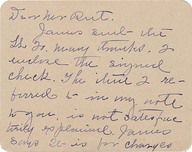 Dear Mr. Rut.
James sent the
many thanks. I
enclose the signed
check. The item I re-
ferred to in my note
to you, is not satisfac
explained James
says it is for charges